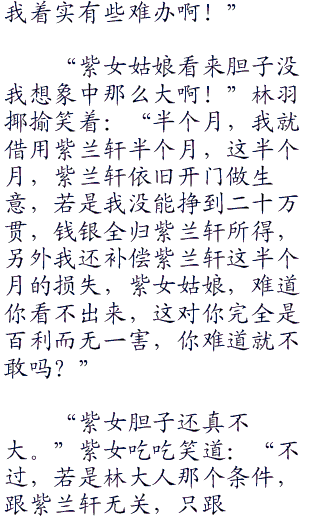 我着实有些难办啊！”
“紫女姑娘看来胆子没
我想象中那么大啊！”林羽
揶揄笑着：“半个月，我就
借用紫兰轩半个月，这半个
月，紫兰轩依旧开门做生
意，若是我没能挣到二十万
贯，钱银全归紫兰轩所得，
另外我还补偿紫兰轩这半个
月的损失，紫女姑娘，难道
你看不出来，这对你完全是
百利而无一害，你难道就不
敢吗？”
“紫女胆子还真不
大。”紫女吃吃笑道：“不
过，若是林大人那个条件，
跟紫兰轩无关，只跟